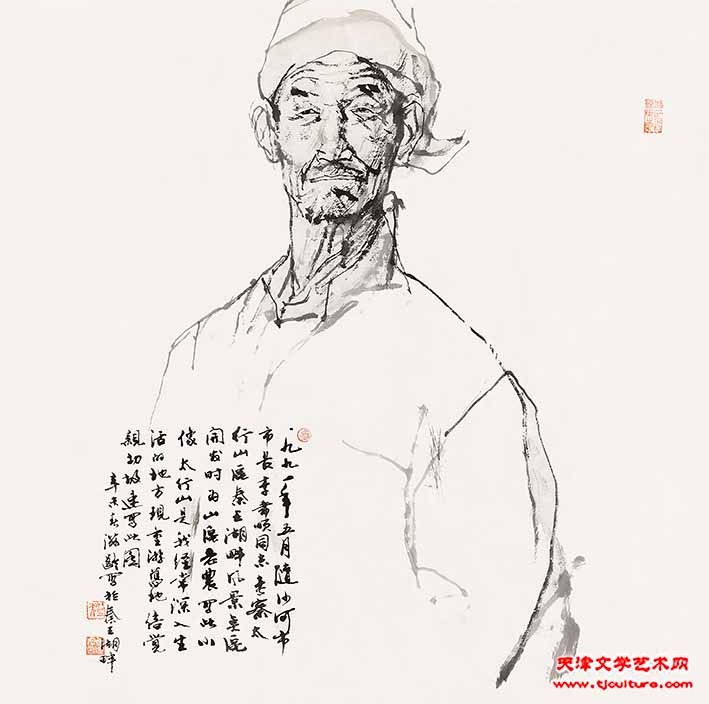 一九九一年五月随沙河市
市长李书顺同志考察太
行山区秦王湖畔风景区
开发时为山区老农写此小
像太行山是我经常深入生
活的地方现重游旧地倍觉
亲切故速写此图
辛未春滋龄写于秦王湖畔
天津文学艺术网
www.tjculture.com